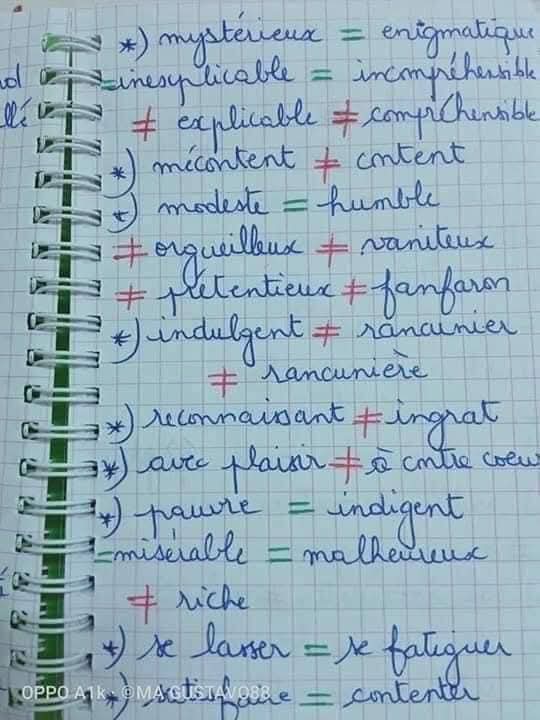 *) mystérieux = enigmatique
= inexplicable = incompréhensible
≠ explicable ≠ compréhensible
*) mécontent ≠ content
*) modeste = humble
≠ orgueilleux ≠ vaniteux
≠ prétentieux ≠ fanfaron
*) indulgent ≠ rancunier
≠ rancunière
*) reconnaissant ≠ ingrat
*) avec plaisir ≠ à contre coeur
*) pauvre = indigent
= misérable = malheureux
≠ riche
*) se lasser = se fatiguer
*) satisfaire = contenter
OPPO A1k · ©MA GUSTAVO88